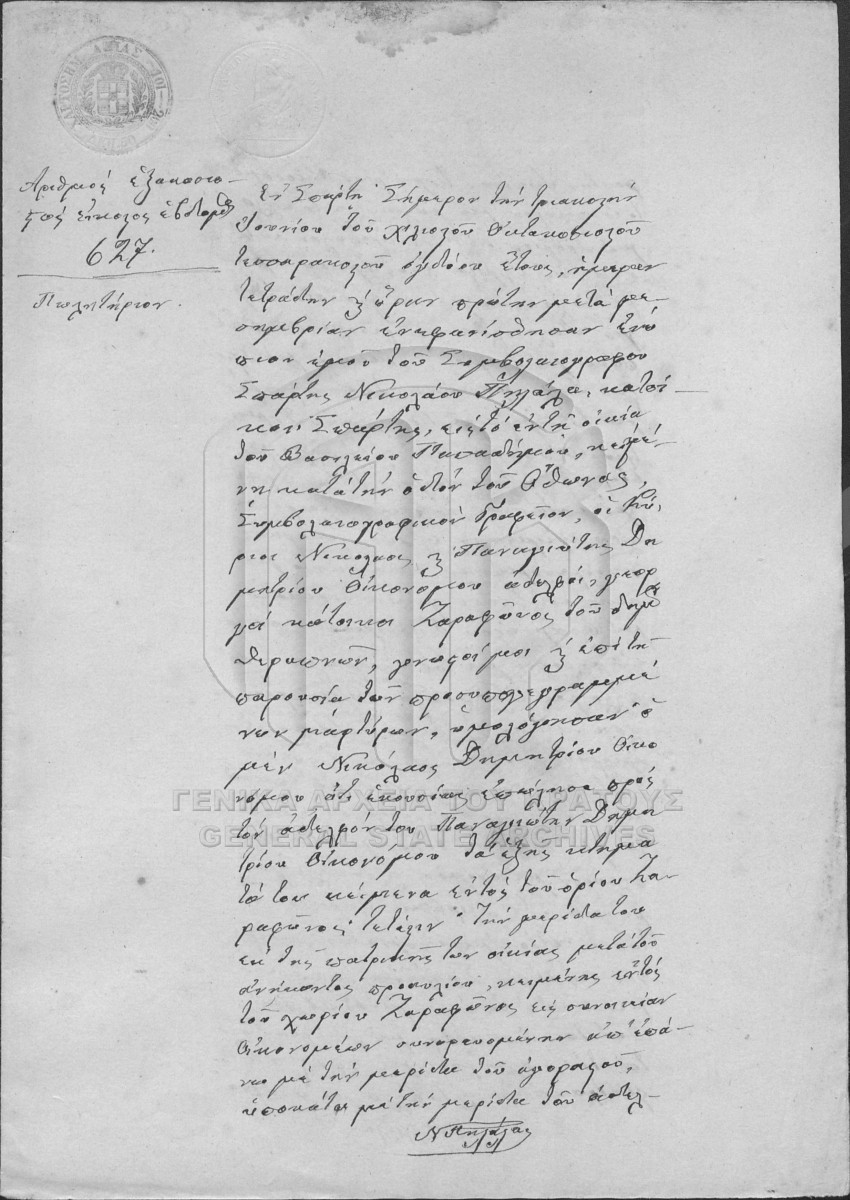 ΧΑΡΤΟΣΗΜ ΑΞΙΑΣ
Αριθμός εξακοσιο-
στός είκοστος έβδομος
627.
Πωλητήριον.
Εν Σπάρτη Σήμερον την τριακοστήν
Ιουνίου του χιλιοστού Οκτακοσιοστού
τεσσαρακοστού ογδόου έτους, ημέραν
τετράδην ϗ ώραν πρώτην μετά με-
σημβρίαν ενεφανίσθησαν ενώ
πιον εμού του Συμβολαιογράφου
Σπάρτης Νικολάου Πηλάλα, κατοί-
κου Σπάρτης, εις το εν τη οικία
του Βασιλείου Παπαδήμου, κειμέ-
νη κατά την οδόν του Όθωνος,
Συμβολαιογραφικόν Γραφείον, οι Κύ-
ριοι Νικόλαος ϗ Παναγιώτης Δη
μητρίου Οικονόμου αδελφοί, γεωρ
γοί κάτοικοι Ζαραφώνος του δήμου
Θεραπνών, γνωστοί μοι ϗ επί τη
παρουσία των προσυπογεγραμμέ
νων μαρτύρων, ωμολόγησαν ο
μεν Νικόλαος Δημητρίου Οικο
νόμου ότι εκουσίως επώλησε προς
τον αδελφόν του Παναγιώτην Δημη
τρίου Οικονόμου τα εξής κτήμα
τά του κείμενα εντός του ορίου Ζα-
ραφώνος, την μερίδα του
εκ της πατρικής των οικίας μετά του
ανήκοντος προαυλίου, κειμένης εντός
του χωρίου Ζαραφώνος εις συνοικίαν
Οικονομέων συνορευομένην απ' επά-
νω με την μερίδα του αγοραστού,
υποκάτω με την μερίδα του αδελ-
Ν Πηλάλας
ΓΕΝΙΚΑ ΑΡΧΕΙΑ ΤΟΥ ΚΡΑΤΟΥΣ
GENERAL STATE ARCHIVES